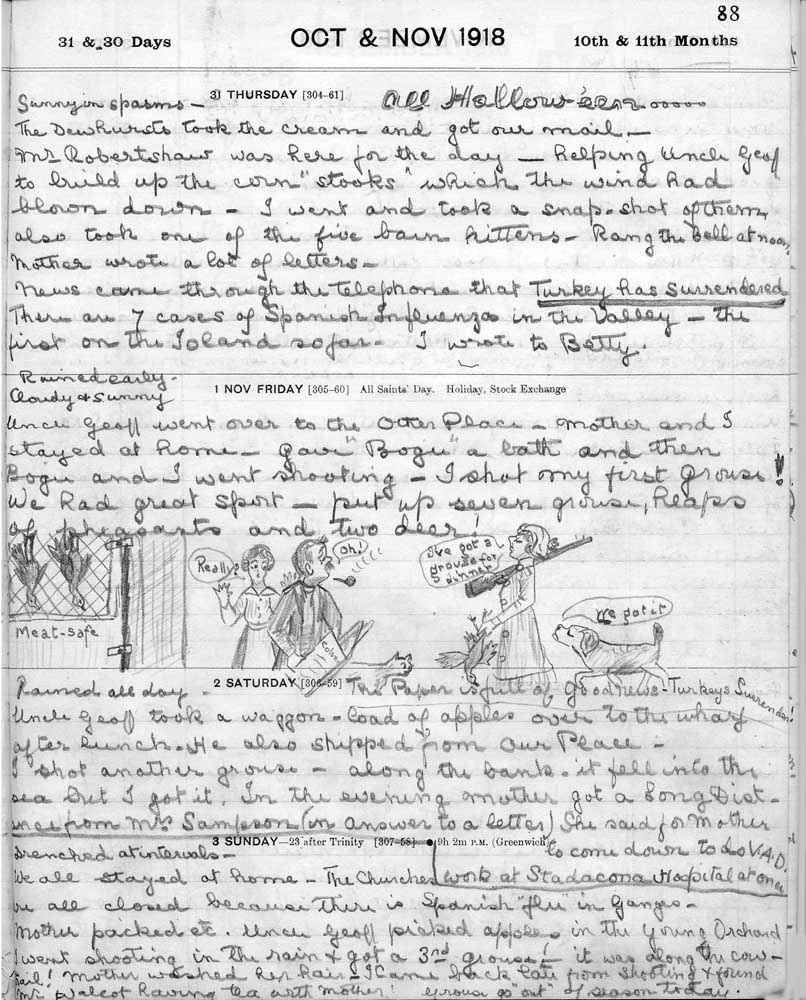 88
31 & 30 Days OCT & NOV 1918 10th & 11th Months
Sunny in spasms - 31 THURSDAY [304-61] All Hallow-'een ooooo
The Dewhursts took the cream and got our mail. -
Mr. Robertshaw was here for the day - helping Uncle Geoff
to build up the corn "stooks" which the wind had
blown down - I went and took a snap-shot of them,
also took one of the five barn kittens - Rang the bell at noon.
Mother wrote a lot of letters -
News came through the telephone that Turkey has surrendered
There are 7 cases of Spanish Influenza in the Valley - the
first on the Island so far - I wrote to Betty
Rained early.
Cloudy & Sunny
1 NOV FRIDAY [305-60] All Saints' Day. Holiday, Stock Exchange
Uncle Geoff went over to the Other Place - Mother and I
stayed at home - gave "Bogie" a bath and then
Bogie and I went shooting - I shot my first Grouse!!
We had great sport - put up seven grouse, heaps
of pheasants and two deer!
Really?
Oh!
I've got a grouse for dinner
We got it
Meat-safe
Colon
Rained all day - 2 SATURDAY [306-59] The Paper is full of good news - Turkeys Surrender!
Uncle Geoff took a waggon-load of apples over to the wharf
after lunch. He also shipped from Our Place -
I shot another grouse - along the bank. it fell into the
sea but I got it. In the evening mother got a Long Dist-
ance from Mrs Sampson (in answer to a letter) She said for Mother
to come down to do V.A.D.
work at Stadacona Hospital at once
3 SUNDAY—23 after Trinity [307-58] ●9h 2m P.M. (Greenwich)
Drenched at intervals -
We all stayed at home - The Churches
be all closed because there is Spanish "flu" in Ganges -
Mother packed etc. Uncle Geoff picked apples in the Young Orchard
I went shooting in the rain & got a 3rd grouse! - it was along the cow-
trail! Mother washed her hair - I came back late from shooting & found
Mr. Walcot having tea with Mother! Grouse go "out" of season today.